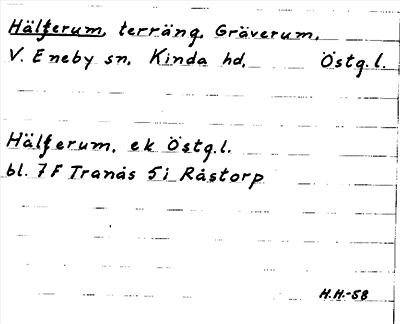 Hälferum, terräng, Gräverum,
V. Eneby sn, Kinda hd, Östg.l.
Hälferum, ek Östg.l.
bl. 7F Tranås 5i Råstorp
H.H.-58